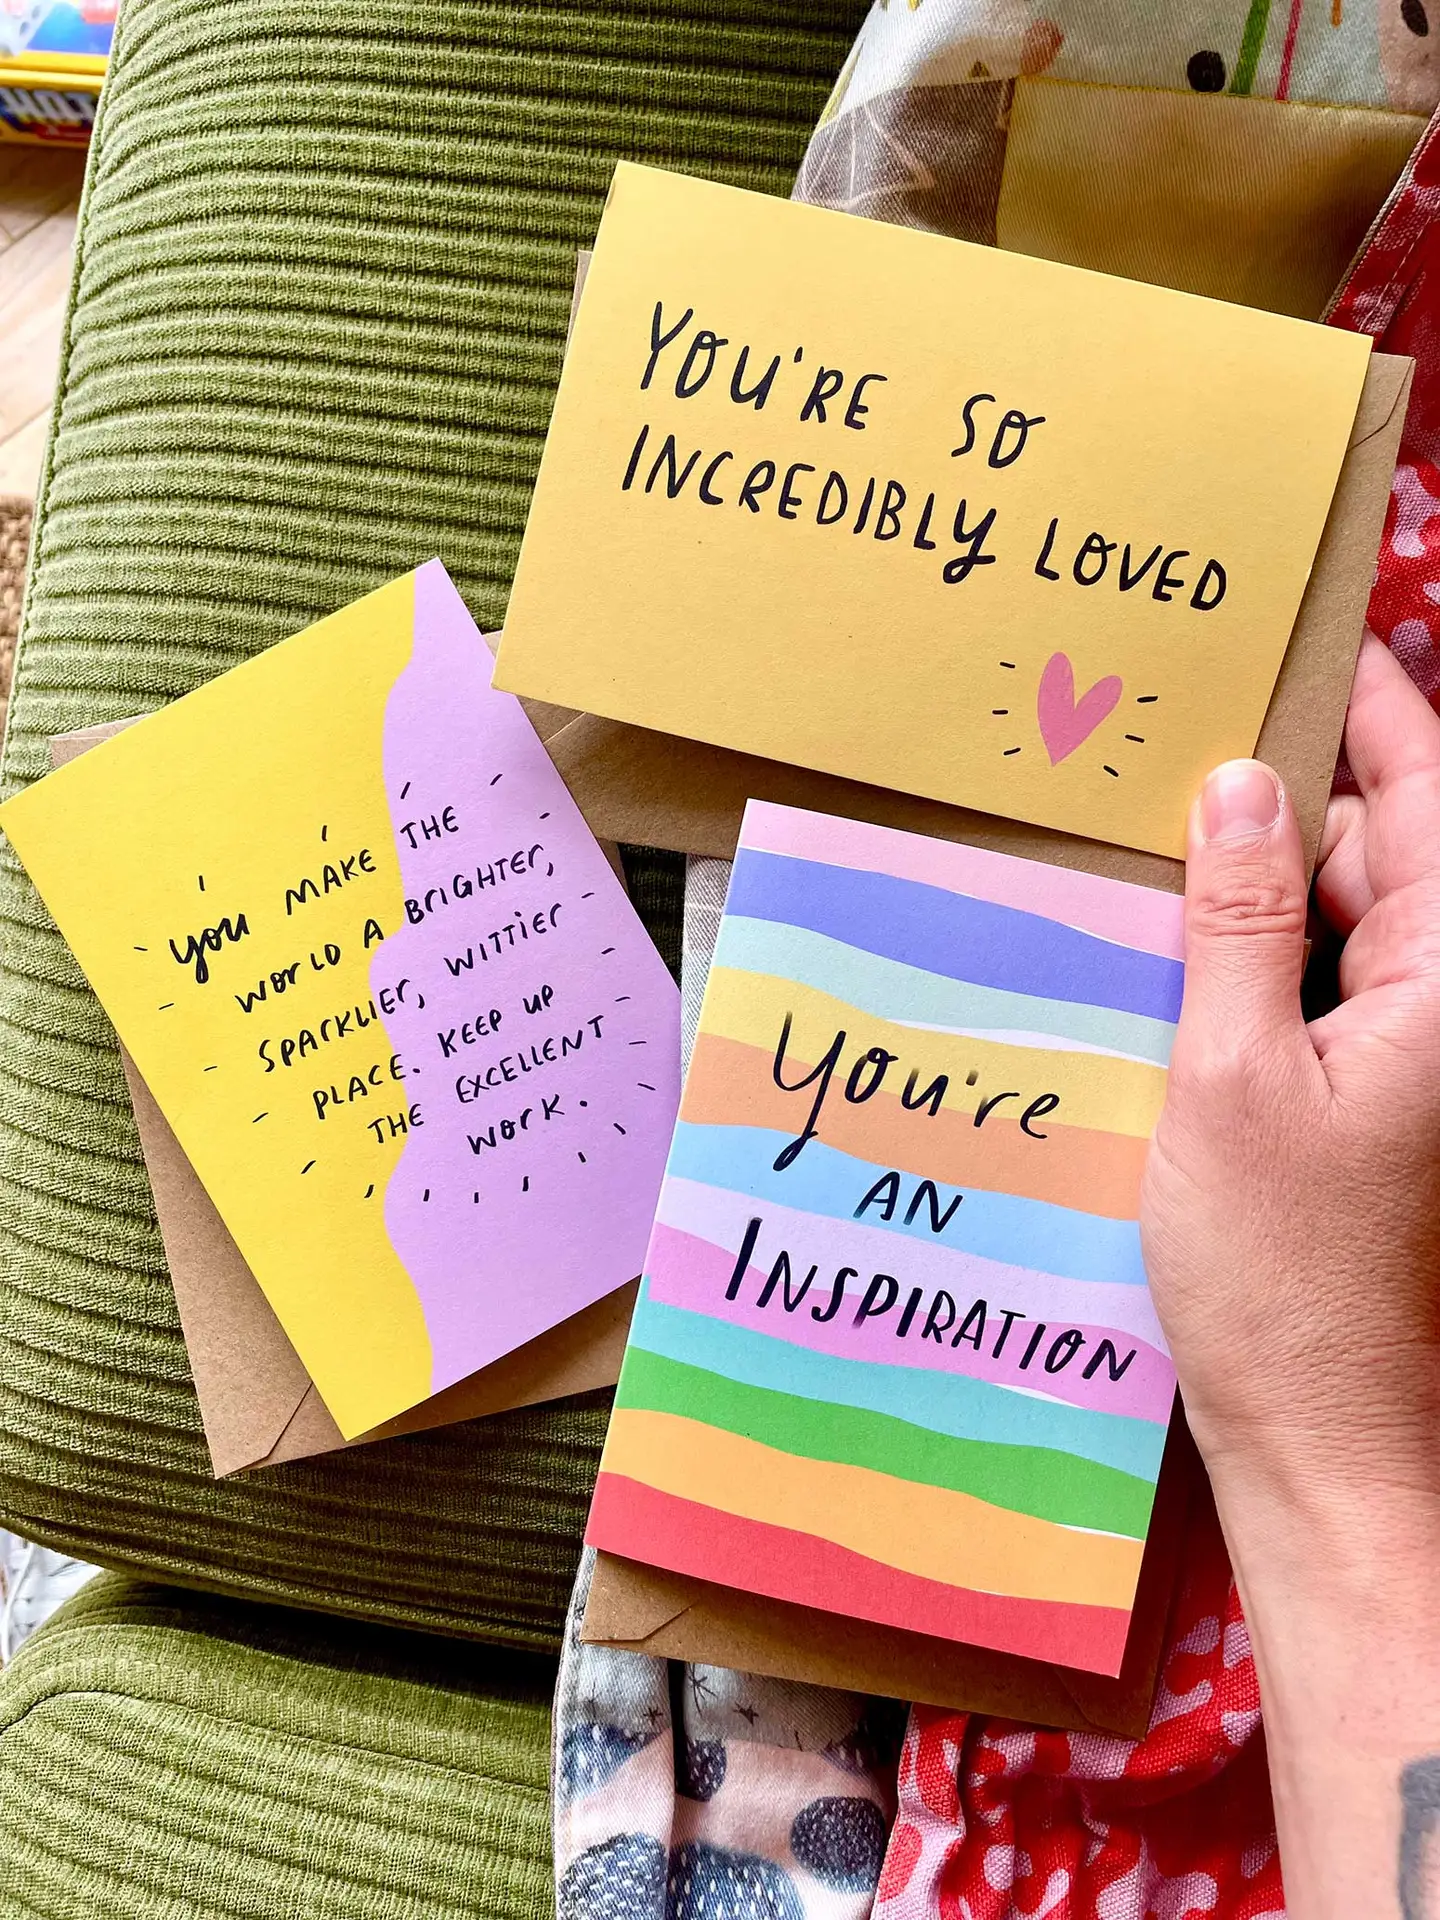 HOT
YOU'RE SO
INCREDIBLY LOVED
you MAKE THE
WORLD A BRIGHTER,
SPARKLIER, WITTIER
PLACE. KEEP UP
THE EXCELLENT
WORK.
You're
AN
INSPIRATION